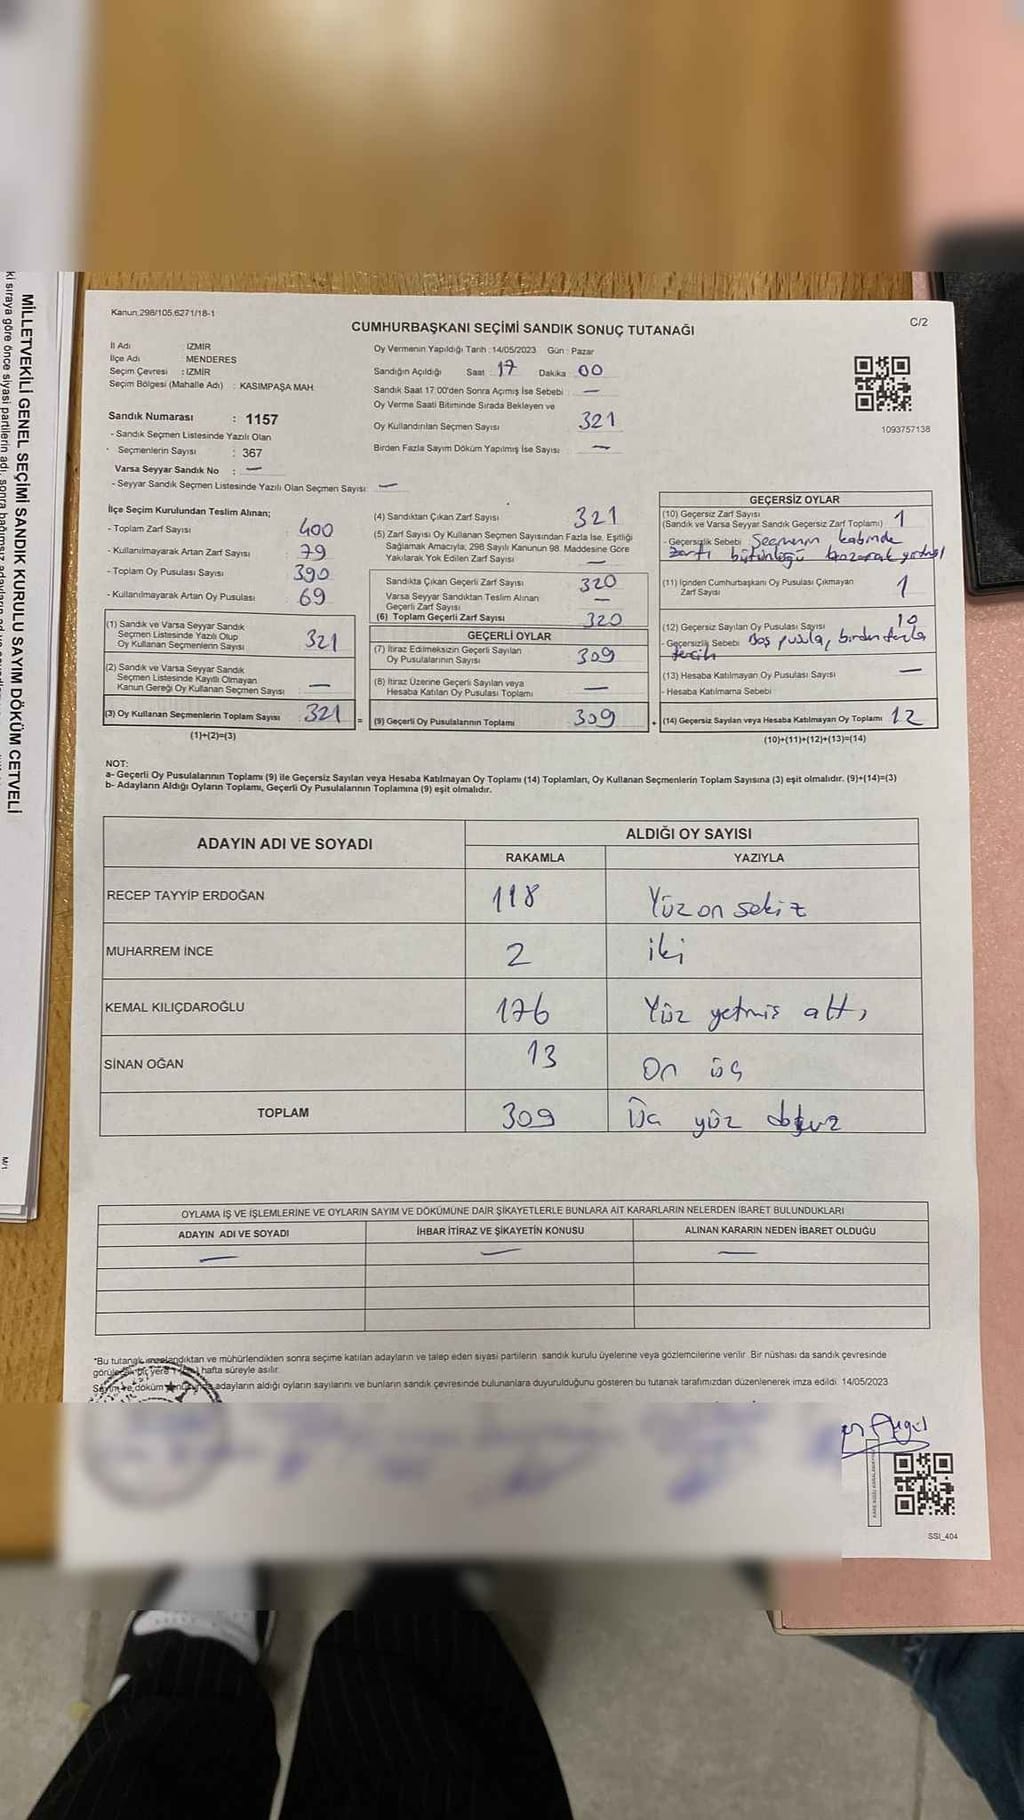 Kanun.298/105.6271/18-1
C/2
CUMHURBAŞKANI SEÇİMİ SANDIK SONUÇ TUTANAĞI
İl Adı IZMIR
İlçe Adı MENDERES
Seçim Çevresi : IZMİR
Seçim Bölgesi (Mahalle Adı) : KASIMPAŞA MAH.
Sandık Numarası : 1157
- Sandık Seçmen Listesinde Yazılı Olan
Seçmenlerin Sayısı : 367
Varsa Seyyar Sandık No : —
- Seyyar Sandık Seçmen Listesinde Yazılı Olan Seçmen Sayısı: —
Oy Vermenin Yapıldığı Tarih : 14/05/2023 Gün : Pazar
Sandığın Açıldığı Saat : 17 Dakika : 00
Sandık Saat 17:00'den Sonra Açmış İse Sebebi : —
Oy Verme Saati Bitiminde Sırada Bekleyen ve
Oy Kullandırılan Seçmen Sayısı : 321
Birden Fazla Sayım Döküm Yapılmış İse Sayısı : —
1093757138
İlçe Seçim Kurulundan Teslim Alınan;
- Toplam Zarf Sayısı : 400
- Kullanılmayarak Artan Zarf Sayısı : 79
- Toplam Oy Pusulası Sayısı : 390
- Kullanılmayarak Artan Oy Pusulası : 69
(1) Sandık ve Varsa Seyyar Sandık
Seçmen Listesinde Yazılı Olup
Oy Kullanan Seçmenlerin Sayısı : 321
(2) Sandık ve Varsa Seyyar Sandık
Seçmen Listesinde Kayıtlı Olmayan
Kanun Gereği Oy Kullanan Seçmen Sayısı : —
(3) Oy Kullanan Seçmenlerin Toplam Sayısı : 321
(1)+(2)=(3)
(4) Sandıktan Çıkan Zarf Sayısı : 321
(5) Zarf Sayısı Oy Kullanan Seçmen Sayısından Fazla İse, Eşitliği
Sağlamak Amacıyla; 298 Sayılı Kanunun 98. Maddesine Göre
Yakılarak Yok Edilen Zarf Sayısı : —
Sandıkta Çıkan Geçerli Zarf Sayısı : 320
Varsa Seyyar Sandıktan Teslim Alınan
Geçerli Zarf Sayısı : —
(6) Toplam Geçerli Zarf Sayısı : 320
GEÇERLİ OYLAR
(7) İtiraz Edilmeksizin Geçerli Sayılan
Oy Pusulalarının Sayısı : 309
(8) İtiraz Üzerine Geçerli Sayılan veya
Hesaba Katılan Oy Pusulası Toplamı : —
(9) Geçerli Oy Pusulalarının Toplamı : 309
GEÇERSİZ OYLAR
(10) Geçersiz Zarf Sayısı
(Sandık ve Varsa Seyyar Sandık Geçersiz Zarf Toplamı) : 1
- Geçersizlik Sebebi : Seçmenin kabinde
zarfı bütünlüğü bozarak
(11) İçinden Cumhurbaşkanı Oy Pusulası Çıkmayan
Zarf Sayısı : 1
(12) Geçersiz Sayılan Oy Pusulası Sayısı : 10
- Geçersizlik Sebebi : Boş pusula, birden fazla
tercih
(13) Hesaba Katılmayan Oy Pusulası Sayısı : —
- Hesaba Katılmama Sebebi
(14) Geçersiz Sayılan veya Hesaba Katılmayan Oy Toplamı : 12
(10)+(11)+(12)+(13)=(14)
NOT:
a- Geçerli Oy Pusulalarının Toplamı (9) ile Geçersiz Sayılan veya Hesaba Katılmayan Oy Toplamı (14) Toplamları, Oy Kullanan Seçmenlerin Toplam Sayısına (3) eşit olmalıdır. (9)+(14)=(3)
b- Adayların Aldığı Oyların Toplamı, Geçerli Oy Pusulalarının Toplamına (9) eşit olmalıdır.
ADAYIN ADI VE SOYADI ALDIĞI OY SAYISI
RAKAMLA YAZIYLA
RECEP TAYYİP ERDOĞAN 118 Yüz on sekiz
MUHARREM İNCE 2 iki
KEMAL KILIÇDAROĞLU 176 Yüz yetmiş altı
SİNAN OĞAN 13 On üç
TOPLAM 309 Üç yüz dokuz
OYLAMA İŞ VE İŞLEMLERİNE VE OYLARIN SAYIM VE DÖKÜMÜNE DAİR ŞİKAYETLERLE BUNLARA AİT KARARLARIN NELERDEN İBARET BULUNDUKLARI
ADAYIN ADI VE SOYADI İHBAR İTİRAZ VE ŞİKAYETİN KONUSU ALINAN KARARIN NEDEN İBARET OLDUĞU
— — —
*Bu tutanak imzalandıktan ve mühürlendikten sonra seçime katılan adayların ve talep eden siyasi partilerin sandık kurulu üyelerine veya gözlemcilerine verilir. Bir nüshası da sandık çevresinde
görülecek bir yere 1 hafta süreyle asılır.
Sayım ve döküm adayların aldığı oyların sayılarını ve bunların sandık çevresinde bulunanlara duyurulduğunu gösteren bu tutanak tarafımızdan düzenlenerek imza edildi. 14/05/2023
SSI_404
MİLLETVEKİLİ GENEL SEÇİMİ SANDIK KURULU SAYIM DÖKÜM CETVELİ
ki sıraya göre önce siyasi partilerin adı, sonra bağımsız adayların
M/1